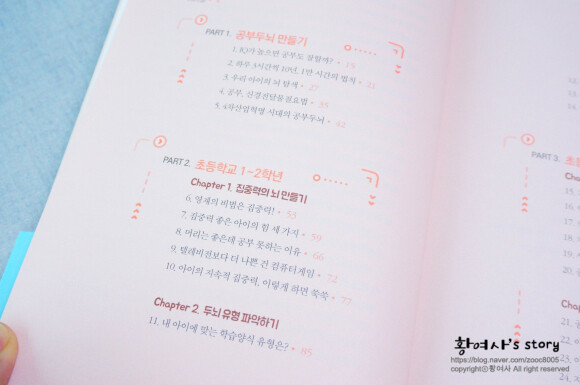 PART 1. 공부두뇌 만들기
1. IQ가 높으면 공부도 잘할까? • 15
2. 하루 3시간씩 10년, 1만 시간의 법칙 • 21
3. 우리 아이의 뇌 탐색 • 27
4. 공부, 신경전달물질요법 • 35
5. 4차산업혁명 시대의 공부두뇌 • 42
PART 2. 초등학교 1~2학년
Chapter 1. 집중력의 뇌 만들기
6. 영재의 비법은 집중력! • 51
7. 집중력 좋은 아이의 힘 세 가지 • 59
8. 머리는 좋은데 공부 못하는 이유 • 66
9. 텔레비전보다 더 나쁜 건 컴퓨터게임 • 72
10. 아이의 지속적 집중력, 이렇게 하면 쑥쑥 • 77
Chapter 2. 두뇌 유형 파악하기
11. 내 아이에 맞는 학습양식 유형은? • 85
PART 3.
황여사's story
https://blog.naver.com/zooc8005
copyrightⓒ황여사 All right reserved